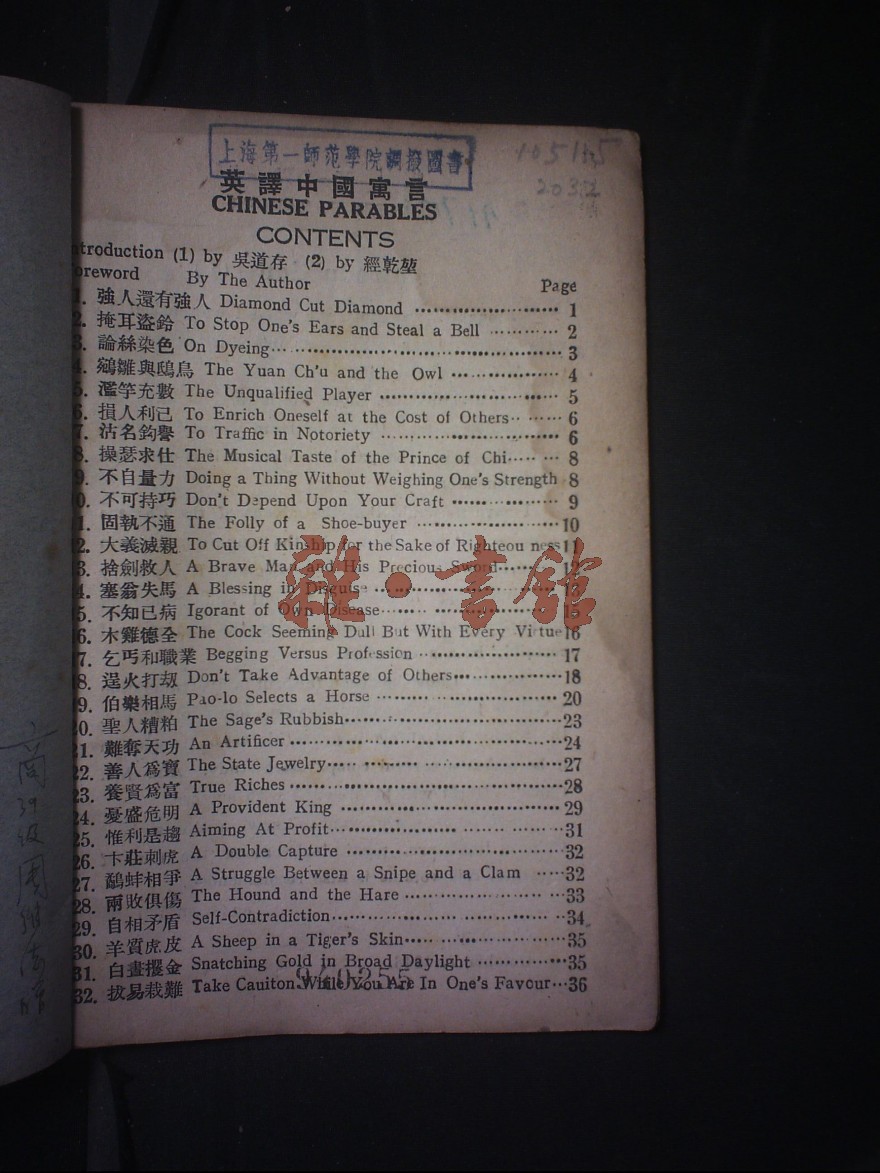 上海第一師范學院調撥圖書
英譯中國寓言
CHINESE PARABLES
CONTENTS
ntroduction (1) by 吳道存 (2) by 經乾堃
oreword By The Author Page
1. 強人還有強人 Diamond Cut Diamond 1
2. 掩耳盜鈴 To Stop One's Ears and Steal a Bell 2
3. 論絲染色 On Dyeing 3
4. 鵷雛與鴟鳥 The Yuan Ch'u and the Owl 4
5. 濫竽充數 The Unqualified Player 5
6. 損人利己 To Enrich Oneself at the Cost of Others 6
7. 沽名鈎譽 To Traffic in Notoriety 6
8. 操瑟求仕 The Musical Taste of the Prince of Chi 8
9. 不自量力 Doing a Thing Without Weighing One's Strength 8
0. 不可持巧 Don't Depend Upon Your Craft 9
1. 固執不通 The Folly of a Shoe-buyer 10
2. 大義滅親 To Cut Off Kinship for the Sake of Righteou ness 11
3. 捨劍救人 A Brave Man and His Precious Sword 12
4. 塞翁失馬 A Blessing in Disguise 13
5. 不知已病 Igorant of Own Disease 15
6. 木雞德全 The Cock Seeming Dull But With Every Virtue 16
7. 乞丐和職業 Begging Versus Profession 17
8. 逞火打刼 Don't Take Advantage of Others 18
9. 伯樂相馬 Pao-lo Selects a Horse 20
20. 聖人糟粕 The Sage's Rubbish 23
21. 難奪天功 An Artificer 24
22. 善人爲寶 The State Jewelry 27
23. 養賢爲富 True Riches 28
24. 憂盛危明 A Provident King 29
25. 惟利是趨 Aiming At Profit 31
26. 卞莊刺虎 A Double Capture 32
27. 鷸蚌相爭 A Struggle Between a Snipe and a Clam 32
28. 兩敗俱傷 The Hound and the Hare 33
29. 自相矛盾 Self-Contradiction 34
30. 羊質虎皮 A Sheep in a Tiger's Skin 35
31. 白晝攫金 Snatching Gold in Broad Daylight 35
32. 拔易栽難 Take Cauiton While You Are In One's Favour 36
940255
雜·書館